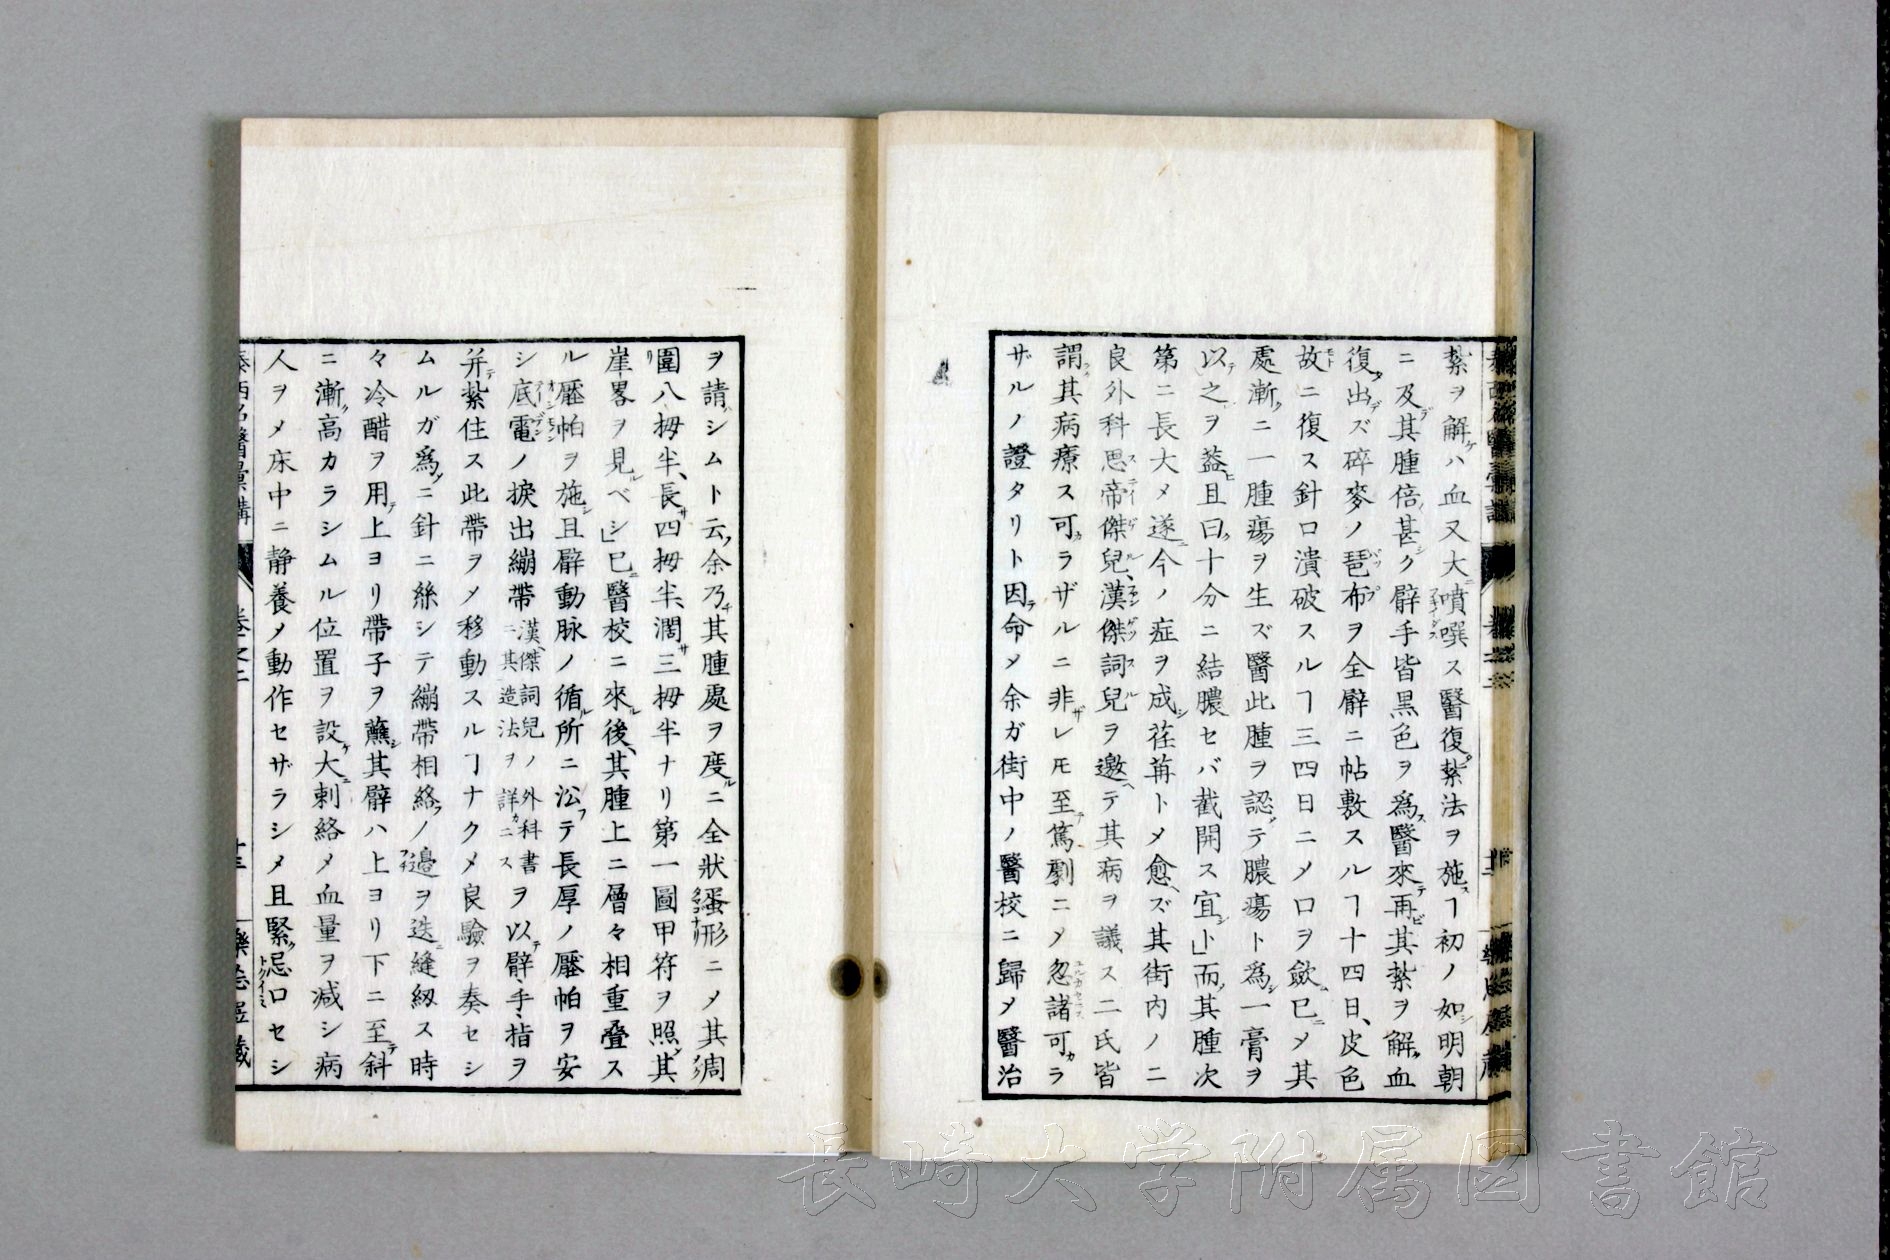 紮ヲ解ケハ血又大ニ噴噀ス醫復タ紮法ヲ施スヿ初ノ如シ明朝
ニ及デ其腫倍甚シク臂手皆黒色ヲ爲ス醫來テ再ビ其紮ヲ解ク血
復タ出デズ碎麥ノ琶布ヲ全臂ニ帖敷スルヿ十四日、皮色
故ニ復ス針口潰破スルヿ三四日ニメ口ヲ歛ム已ニメ其
處漸クニ一腫瘍ヲ生ズ醫此腫ヲ認テ膿瘍ト爲シ一膏ヲ
以テ之ヲ葢ヒ且曰ク十分ニ結膿セバ截開ス宜シト」而其腫次
第ニ長大メ遂ニ今ノ症ヲ成シ荏苒トメ愈ヘズ其街内ノ二
良外科思帝傑兒、漢傑詞兒ヲ邀ヘテ其病ヲ議ス二氏皆
謂ク其病療ス可カラザルニ非ザレ𪜈至テ篤劇ニメ忽諸可カラ
ザルノ證タリト因テ命メ余ガ街中ノ醫校ニ歸メ醫治
ヲ請ハシムト云フ余乃チ其腫處ヲ度ルニ全狀蛋形ニメ其周
圍リ八拇半、長サ四拇半、濶サ三拇半ナリ第一圖甲符ヲ照メ其
崖畧ヲ見ルベシ」已ニ醫校ニ來ル後、其腫上ニ層々相重疊ス
ル壓帕ヲ施シ且臂動脉ノ循ル所ニ㳂フテ長厚ノ壓帕ヲ安
シ底電ノ捩出繃帶漢傑詞兒ノ外科書ニ其造法ヲ詳カニスヲ以テ臂、手、指ヲ
并テ紮住ス此帶ヲメ移動スルヿナクメ良驗ヲ奏セシ
ムルガ爲メニ針ニ絲シテ繃帶相絡フノ邊ヲ迭ニ縫紉ス時
々冷醋ヲ用テ上ヨリ帶子ヲ蘸シ其臂ハ上ヨリ下ニ至テ斜
ニ漸ク高カラシムル位置ヲ設ケ大ニ刺絡メ血量ヲ減シ病
人ヲメ床中ニ静養メ動作セザラシメ且緊ク忌口セシ
泰西名醫彙講 卷之二 十三